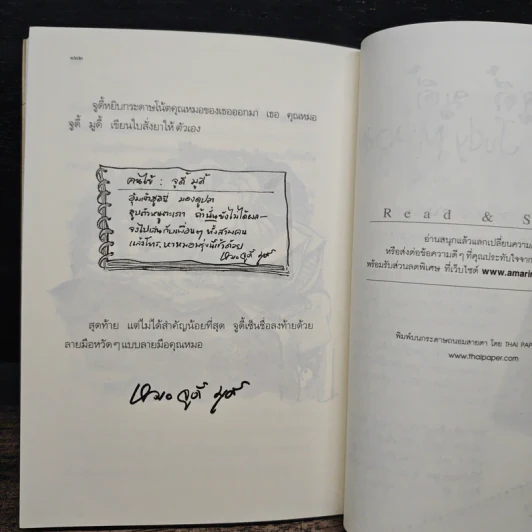 จูดี้หยิบกระดาษโน้ตคุณหมอของเธอออกมา เธอ คุณหมอ
จูดี้ มูดี้ เขียนใบสั่งยาให้ตัวเอง
คนไข้ : จูดี้ มูดี้
อุ้มเจ้า มองดูปลา
ถ้านั่นยังไม่ได้ผล
จงไปเล่นกับเพื่อนๆ ทั้งสามคน
แล้วโทร.หาหมอพรุ่งนี้เช้าด้วย
หมอ จูดี้ มูดี้
สุดท้าย แต่ไม่ได้สำคัญน้อยที่สุด จูดี้เซ็นชื่อลงท้ายด้วย
ลายมือหวัดๆ แบบลายมือคุณหมอ
หมอ จูดี้ มูดี้
Read & S
อ่านสนุกแล้วแลกเปลี่ยนความ
หรือส่งต่อข้อความดีๆ ที่คุณประทับใจจาก
พร้อมรับส่วนลดพิเศษ ที่เว็บไซต์ www.amarin
พิมพ์บนกระดาษถนอมสายตา โดย THAI PAP
www.thaipaper.com